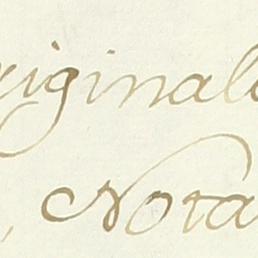 riginale
, Nota